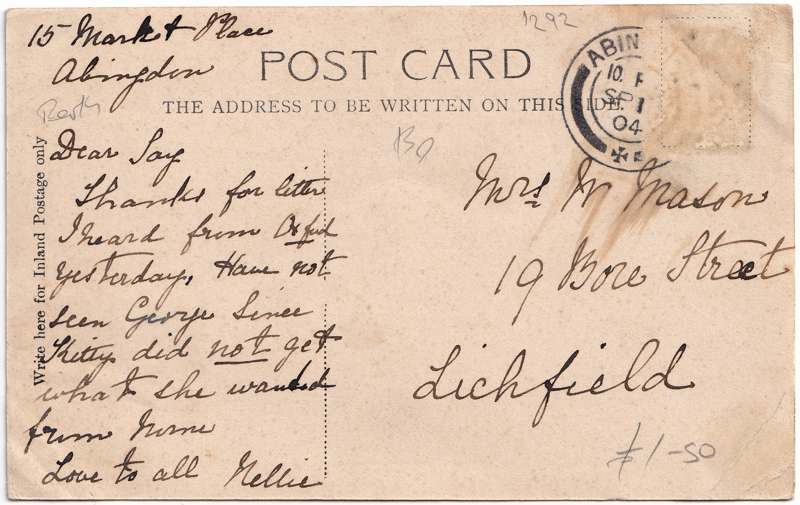 15 Market Place
Abingdon
1292
POST CARD
THE ADDRESS TO BE WRITTEN ON THIS SIDE.
ABIN
10. P
SP 1
04
Write here for Inland Postage only
Dear Say
Thanks for letter
I heard from Oxford
yesterday, Have not
seen George Since
Kitty did not get
what she wanted
from Home
Love to all Nellie
Mrs W Mason
19 Bore Street
Lichfield
£1-50